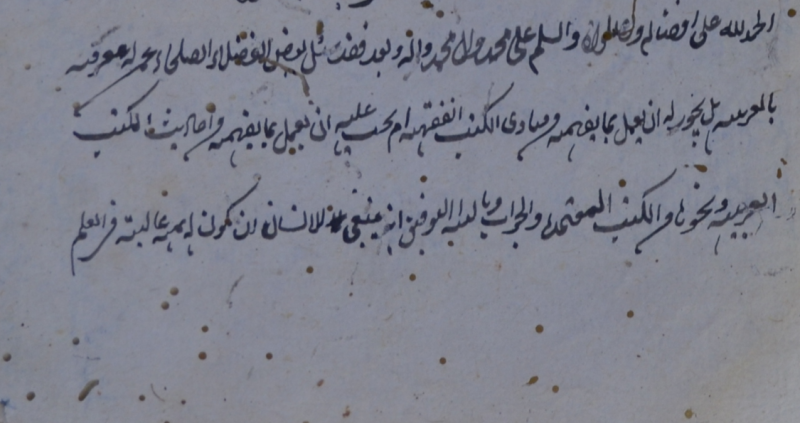 الحمد لله على افضاله والسلم على محمد وال محمد وبعد فقد سئل بعض الفضلاء الصلحاء عمن له معرفة
بالعربية هل يجوز له ان يعمل بما يفهمه من مبادى الكتب الفقهية ام يجب عليه ان يعمل بما يفهمه من احاديث الكتب
العربية ونحوها من الكتب المعتمدة والجواب وبالله التوفيق انه ينبغي للانسان ان يكون له همة عالية في العلم